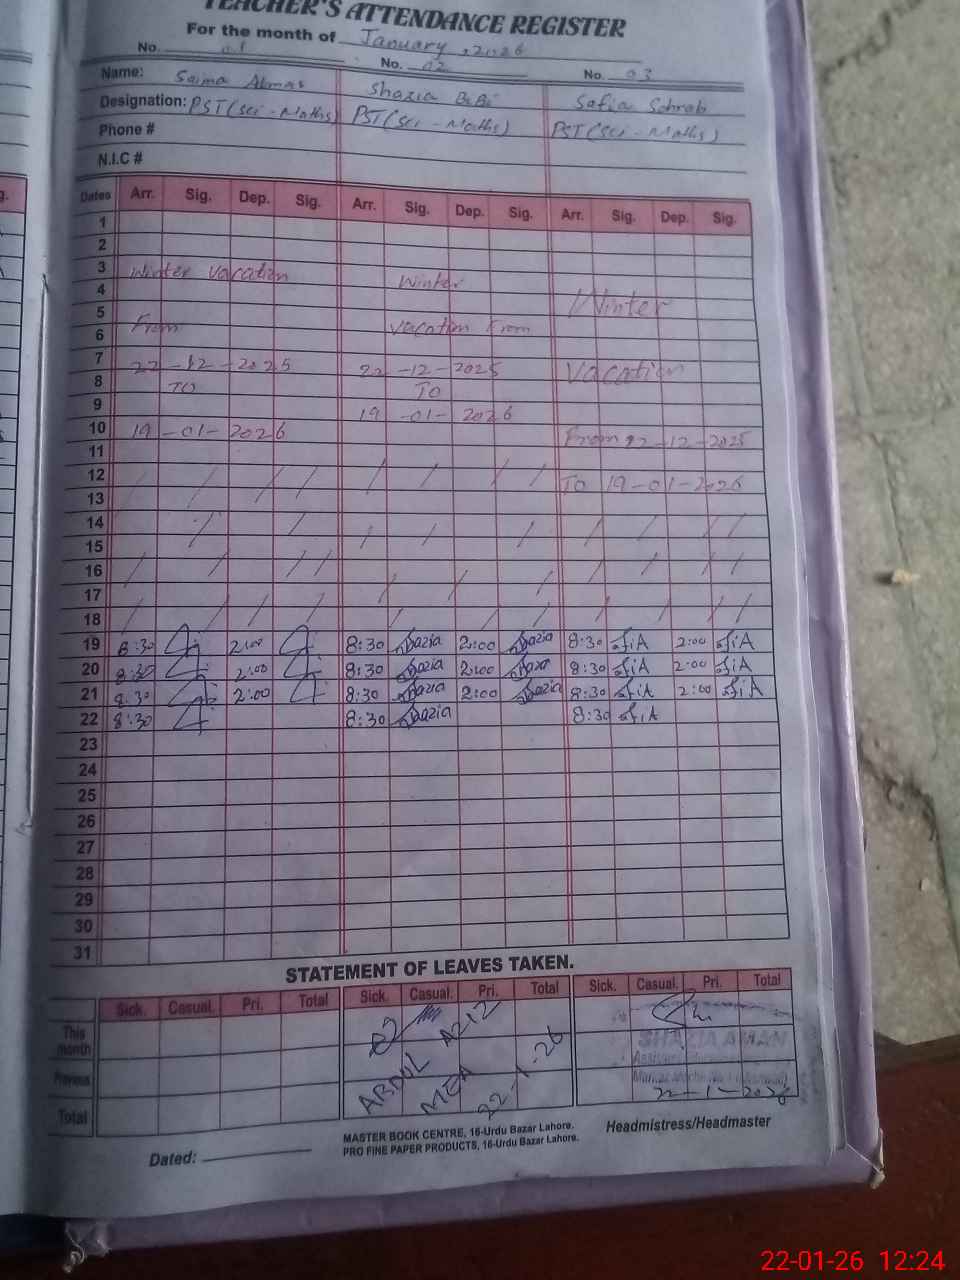 TEACHER'S ATTENDANCE REGISTER
For the month of January, 2026
No. 01 No. 02 No. 03
Name: Saima Shazia BiBi Safia Sohrab
Designation: PST (Sci-Maths) PST (Sci-Maths) PST (Sci-Maths)
Phone #
N.I.C #
Dates Arr. Sig. Dep. Sig. Arr. Sig. Dep. Sig. Arr. Sig. Dep. Sig.
1
2
3 Winter vacation Winter
4 Winter
5
6 From vacation From
7 22-12-2025 22-12-2025 Vacation
8 TO TO
9 19-01-2026
10 19-01-2026 From 22-12-2025
11
12 To 19-01-2026
13
14
15
16
17
18
19 8:30 2:00 8:30 Shazia 2:00 Shazia 8:30 SafiA 2:00 SafiA
20 8:30 2:00 8:30 Shazia 2:00 Shazia 8:30 SafiA 2:00 SafiA
21 8:30 2:00 8:30 Shazia 2:00 Shazia 8:30 SafiA 2:00 SafiA
22 8:30 8:30 Shazia 8:30 SafiA
23
24
25
26
27
28
29
30
31
STATEMENT OF LEAVES TAKEN.
Sick. Casual. Pri. Total Sick. Casual. Pri. Total Sick. Casual. Pri. Total
This month
Previous
Total
ABDUL AZIZ
MEA
22-1-26
SHAZIA AMAN
22-1-2026
Dated:
MASTER BOOK CENTRE, 16-Urdu Bazar Lahore.
PRO FINE PAPER PRODUCTS, 16-Urdu Bazar Lahore.
Headmistress/Headmaster
22-01-26 12:24